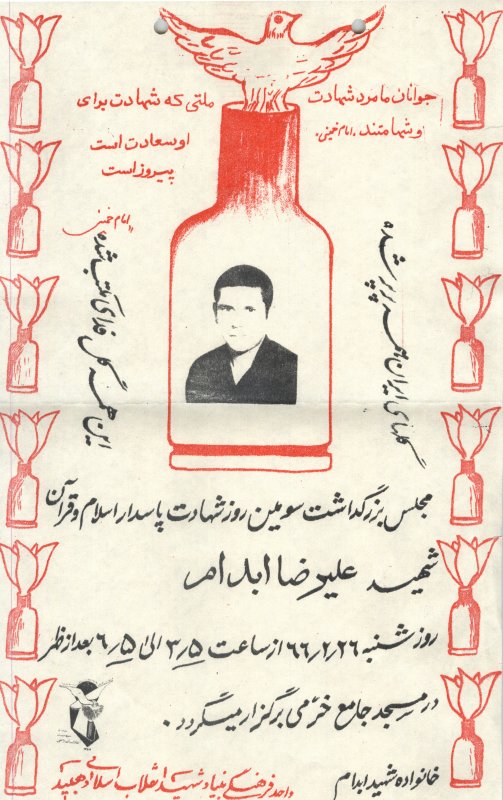 جوانان ما مرد شهادت
و شهامتند . امام خمینی .
ملتی که شهادت برای
او سعادت است
پیروز است
"امام خمینی
گلهای ایران همه پرپر شده
این همه گل فدای مکتب شده
مجلس بزرگداشت سومین روز شهادت پاسدار اسلام و قرآن
شهید علیرضا ابدام
روز شنبه ۶۶٫۲٫۲۶ از ساعت ۳٫۵ الی ۶٫۵ بعدازظهر
در مسجد جامع خرّمی برگزار میگردد .
خانواده شهید ابدام
واحد فرهنگی بنیاد شهید انقلاب اسلامی دهبید